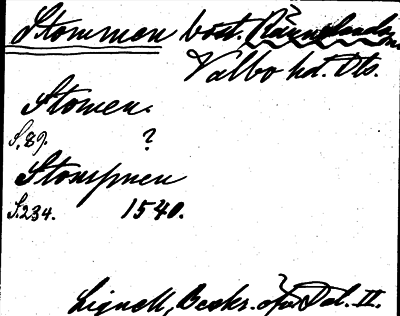 Stommen bost. Rännelanda sn.
Valbo hd. Dls.
Stomen.
S. 89. ?
Stompnen
S. 234. 1540.
Lignell, Beskr. öfver Dal. II.